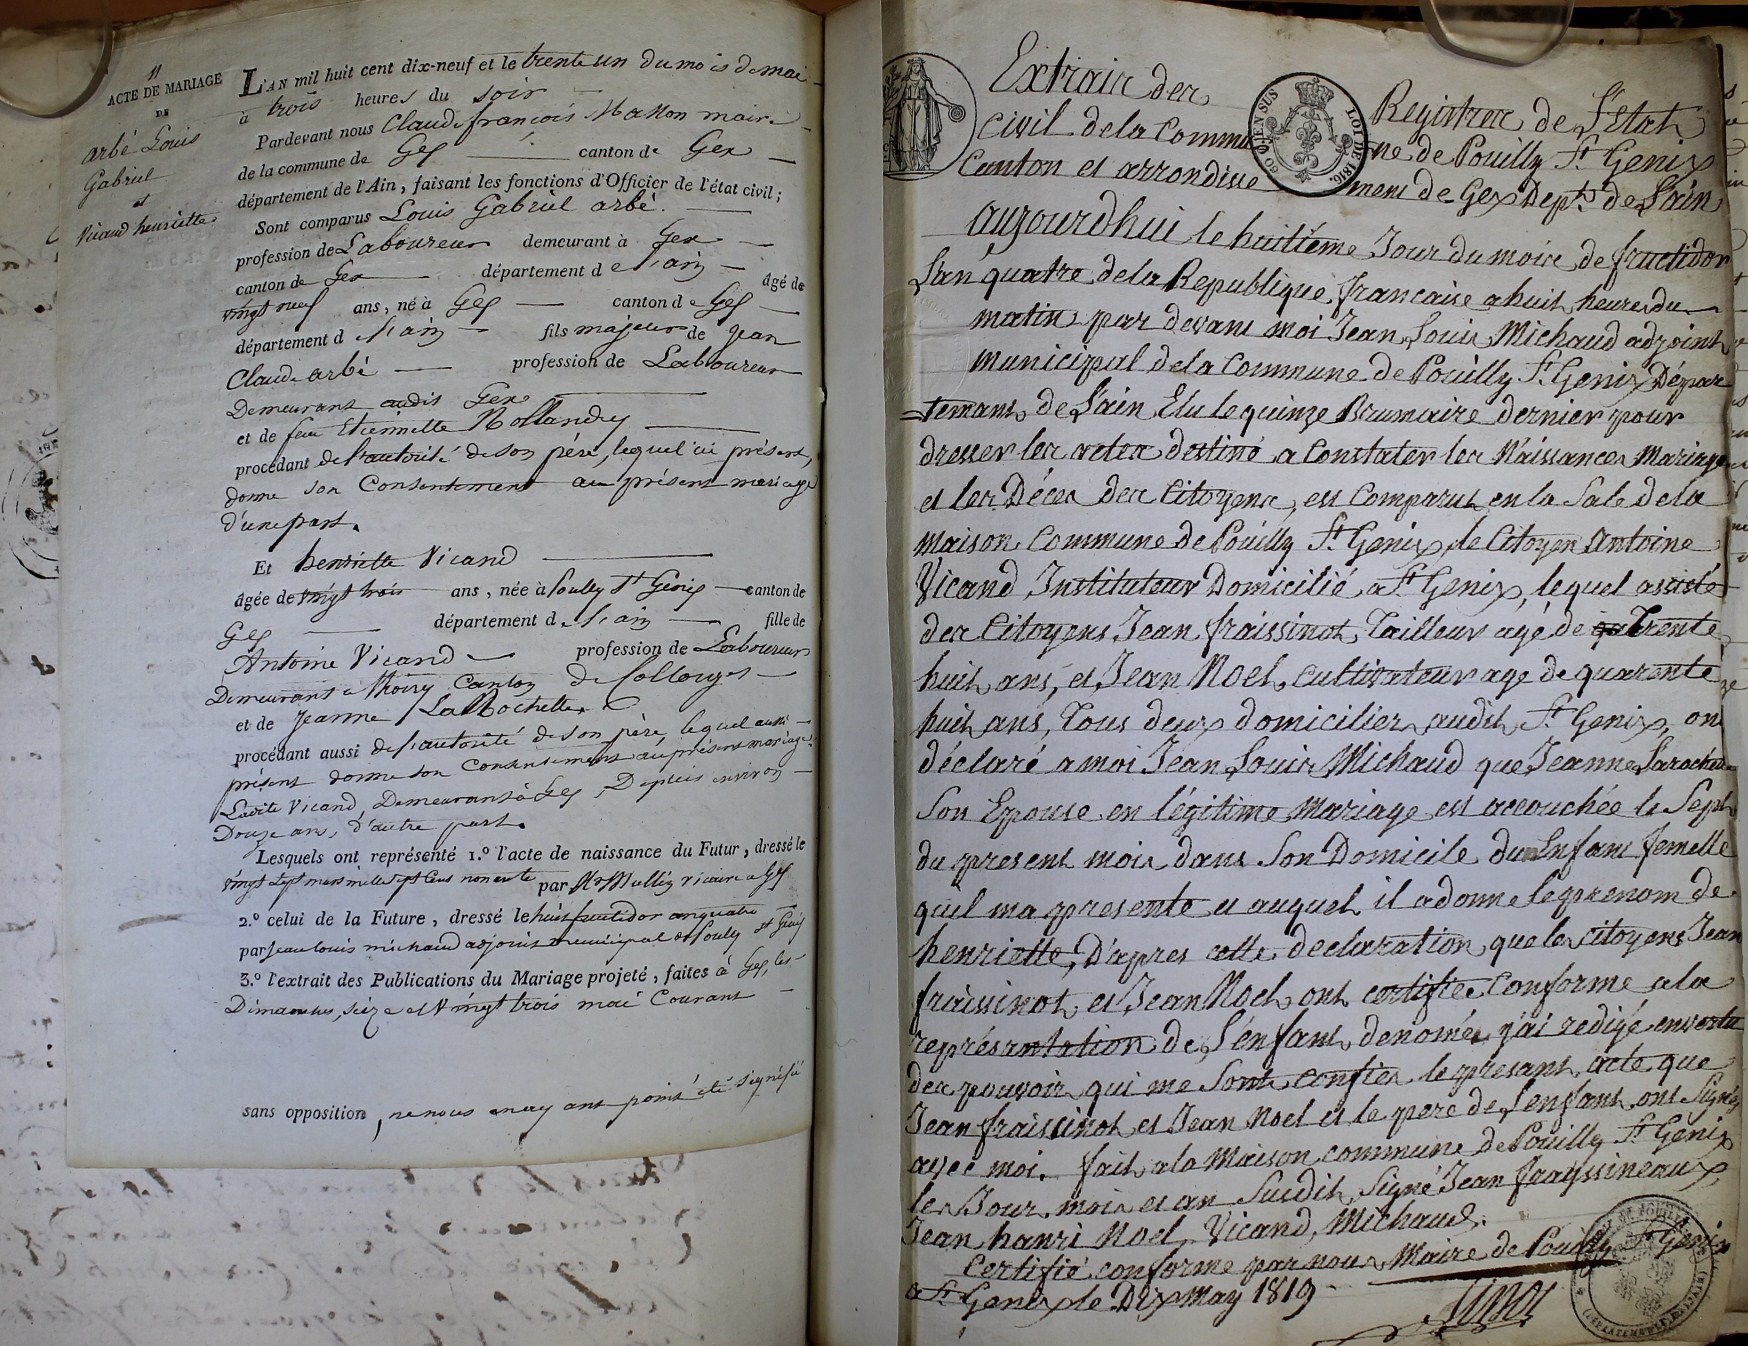 11
ACTE DE MARIAGE
DE
arbé Louis
Gabriel
et
Vicand henriette
L'AN mil huit cent dix-neuf et le trente un du mois de mai
à trois heures du soir
Pardevant nous Claude françois Masson maire
de la commune de Gex canton de Gex
département de l'Ain, faisant les fonctions d'Officier de l'état civil;
Sont comparus Louis Gabriel arbé.
profession de Laboureur demeurant à Gex
canton de Gex département de l'ain âgé de
vingt neuf ans, né à Gex canton de Gex
département d l'ain fils majeur de Jean
Claude arbé profession de Laboureur
Demeurant audit Gex
et de feue Etiennette Rollandy
procédant de l'autorité de son père, lequel ici présent,
donne son Consentement au présent mariage
d'une part.
Et henriette Vicand
âgée de vingt trois ans, née à Pouilly St Genix canton de
Gex département d l'ain fille de
Antoine Vicand profession de Laboureur
Demeurant à Thoiry Canton de Collonges
et de Jeanne LaRochette.
procédant aussi de l'autorité de son père, lequel aussi
présent donne son Consentement au présent mariage.
Ladite Vicand Demeurant à Gex, Depuis environ
Douze ans, d'autre part.
Lesquels ont représenté 1.º l'acte de naissance du Futur, dressé le
vingt sept mars mille sept Cent nonante par Mr vicaire à Gex
2.º celui de la Future, dressé le huit fructidor an quatre
par Jean Louis michaud adjoint municipal de Pouilly St Genix
3.º l'extrait des Publications du Mariage projeté, faites à Gex, les
Dimanches, Seize et Vingt trois mai Courant
sans opposition, ne nous en ay ant point été signifié
Extrait des Registres de L'Etat
Civil de la Commune de Pouilly St Genix
Canton et arrondissement de Gex Dept. de L'ain
SOUS EN SUS
LOI DE 1816.
aujourdhui le huitiéme Jour du mois de fructidor
Lan quatre de la Republique francaise a huit heure du
matin par devant moi Jean Louis Michaud adjoint
municipal de la Commune de Pouilly St Genix Dépar
tement de L'ain Elu le quinze Brumaire dernier pour
dresser les actes destiné a Constater les Naissances Mariage
et les Déces des Citoyens, est Comparut en la Sale de la
maison Commune de Pouilly St Genix, le Citoyen Antoine
Vicand Instituteur Domicilié a St Genix, lequel assisté
des Citoyens Jean fraissinot, Tailleur agé de Trente
huit ans, et Jean Noel, Cultivateur age de quarente
huit ans, Tous deux domicilier audit St Genix, on
déclaré a moi Jean Louis Michaud que Jeanne Larochette
Son Epouse en légitime Mariage est accouchée le Sept
du present mois dans Son Domicile Enfant femelle
quil ma presente et auquel il a donne le prenom de
henriette, D'apres cette declaration que les citoyens Jean
fraissinot, et Jean Noel, ont certifiée Conforme a la
représantation de L'énfant, denomée, j'ai redigé en vertu
des pouvoir qui me Sont confies le present acte que
Jean fraissinot et Jean Noel et le pere de L'enfant ont Signés
avec moi. fait a la Maison commune de Pouilly St Genix
les Jour, mois et an Susdit, Signé Jean frayssineaux,
Jean hanri Noel, Vicand, Michaud.
Certifié conforme par nous Maire de Pouilly St Genix
a St Genix le Dix May 1819